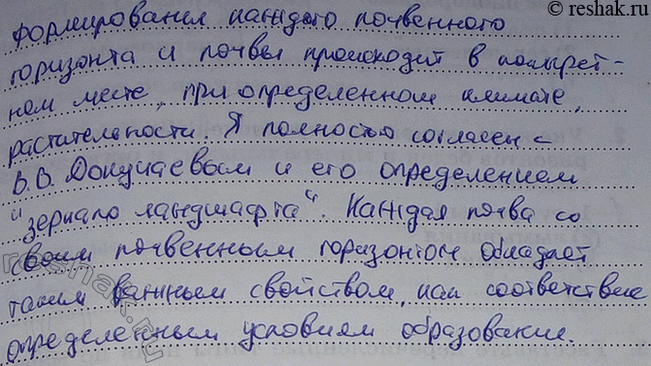 © reshak.ru
формирования каждого почвенного
горизонта и почвы происходит в конкрет-
ном месте, при определенном климате,
растительности. Я полностью согласен с
В.В. Докучаевым и его определением
"зеркало ландшафта". Каждая почва со
своим почвенным горизонтом обладает
таким важным свойством, как соответствие
определенным условием образование.
reshak.ru